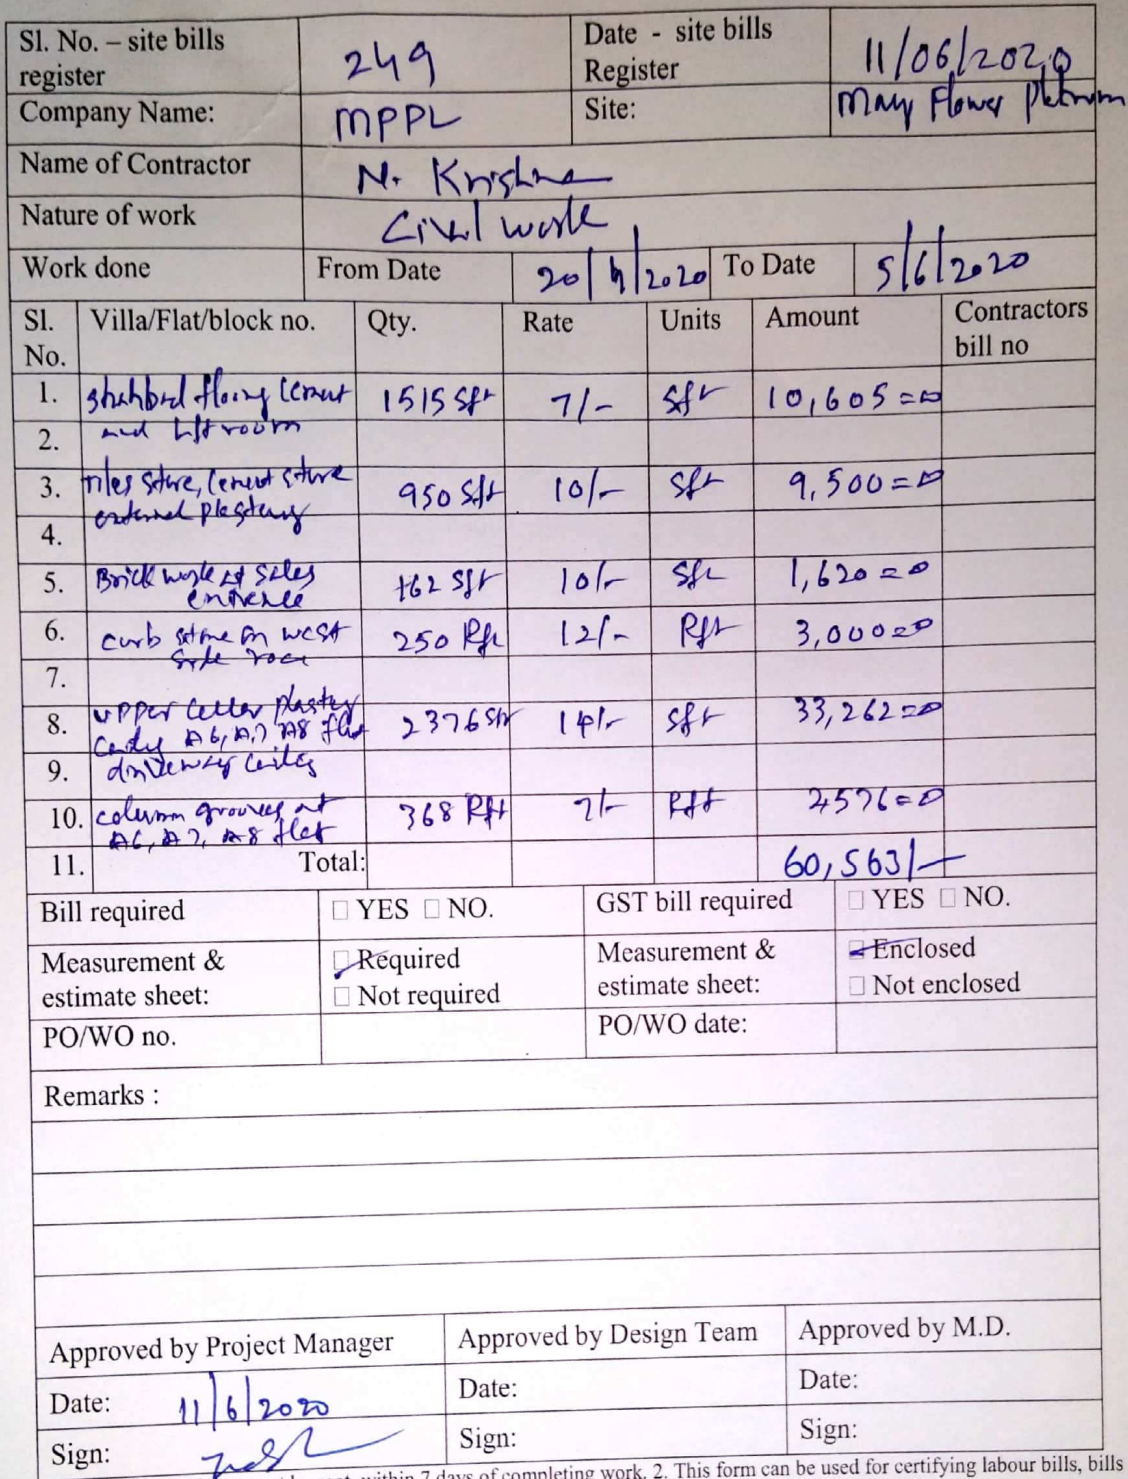 Sl. No. – site bills register 249 Date - site bills Register 11/06/2020
Company Name: MPPL Site: May Flower Platinum
Name of Contractor N. Krishna
Nature of work Civil work
Work done From Date 20/ /2020 To Date 5/6/2020
Sl. No. Villa/Flat/block no. Qty. Rate Units Amount Contractors bill no
1. cement 1515 Sft 7/- Sft 10,605=00
2. and lift room
3. tiles store, cement store 950 Sft 10/- Sft 9,500=0
external plastering
4.
5. Brick work at sales 162 Sft 10/- Sft 1,620=0
entrence
6. curb stone on west 250 Rft 12/- Rft 3,000=0
side
7.
8. upper celler plaster 2376 Sft 14/- Sft 33,262=0
A6, A7, A8 flat
9. driveway
10. column grooves at 368 Rft 7/- Rft 2576=0
A6, A7, A8 flat
11. Total: 60,563/-
Bill required □ YES □ NO. GST bill required □ YES □ NO.
Measurement & estimate sheet: □ Required Measurement & estimate sheet: □ Enclosed
□ Not required □ Not enclosed
PO/WO no. PO/WO date:
Remarks :
Approved by Project Manager Approved by Design Team Approved by M.D.
Date: 11/6/2020 Date: Date:
Sign: Sign: Sign:
within 7 days of completing work. 2. This form can be used for certifying labour bills, bills